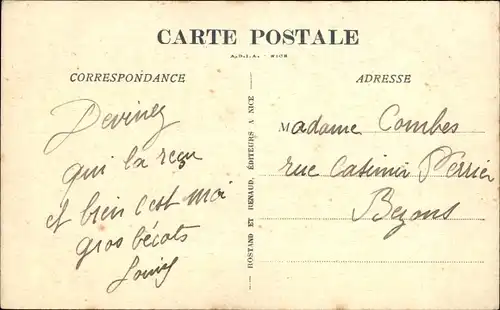 CARTE POSTALE
A.D.I.A. - NICE
CORRESPONDANCE
Devinez
qui la reçu
et bien c'est moi
gros bécots
ROSTAND ET RENAUD, ÉDITEURS A NICE
ADRESSE
Madame Combes
rue Casimir Perrier
Bezons